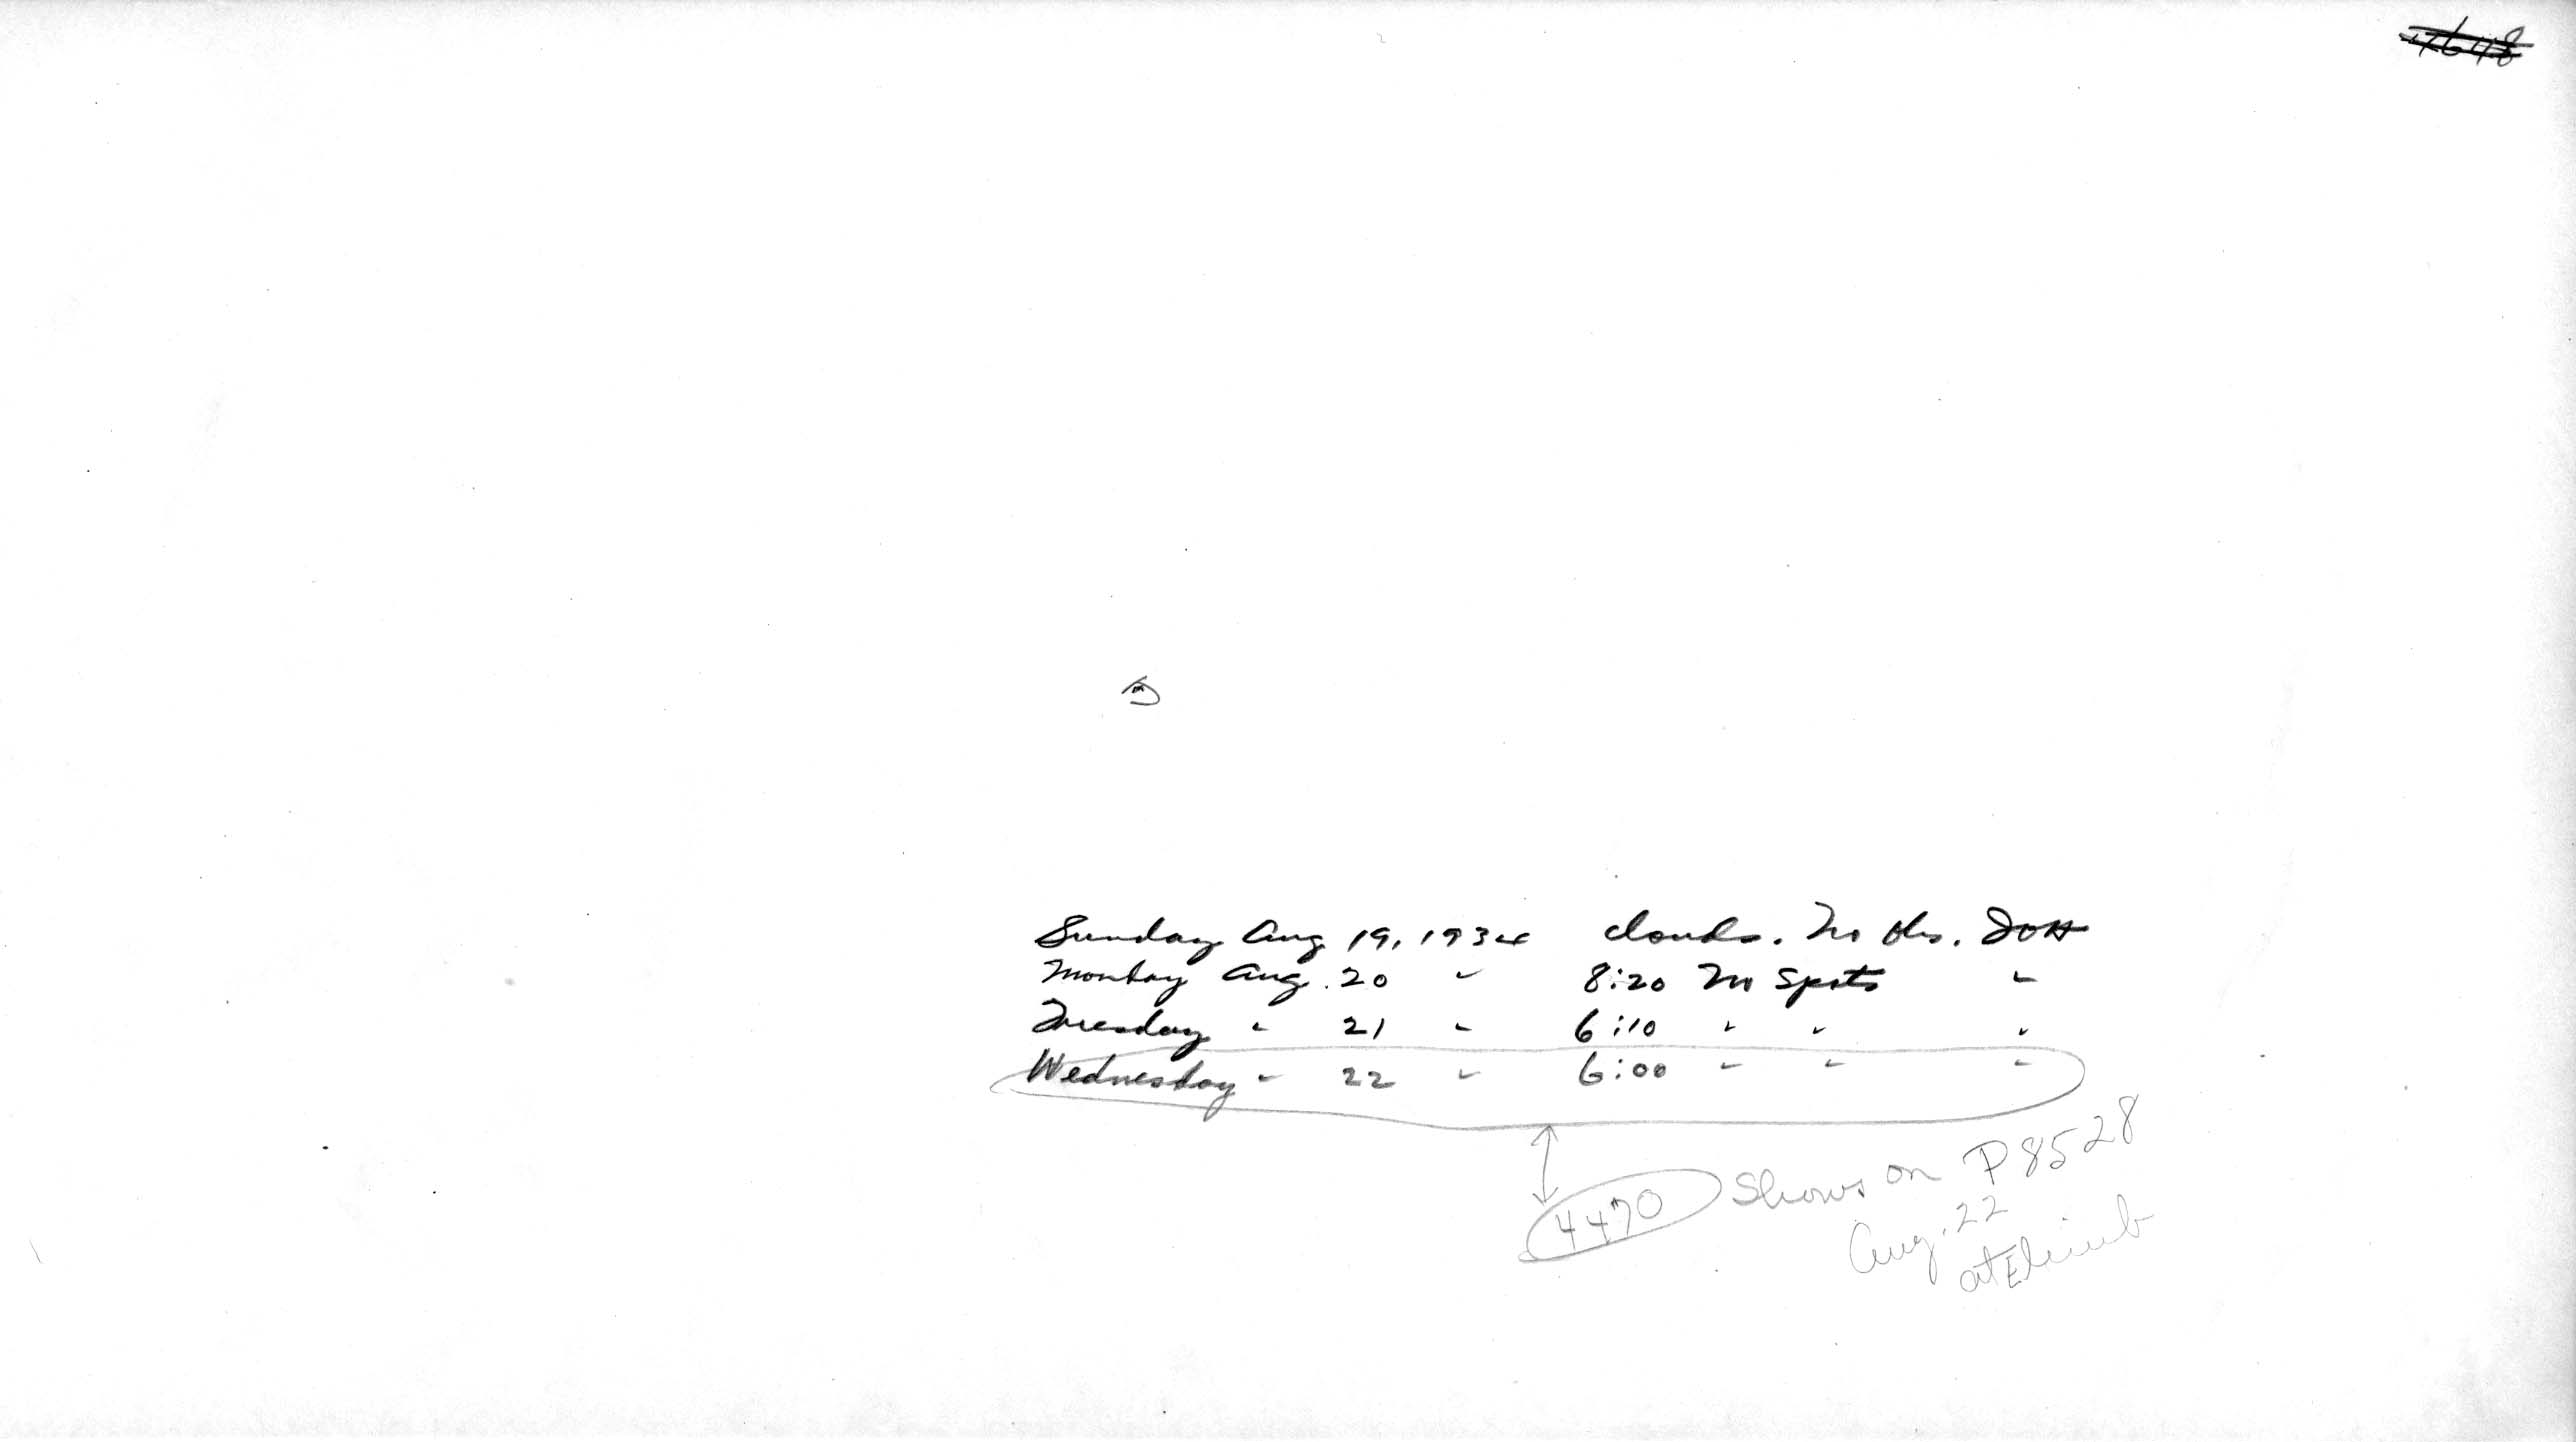 Sunday Aug 19, 1934 clouds. No obs. JOH
Monday Aug. 20 " 8:20 No Spots "
Tuesday " 21 " 6:10 " " "
Wednesday " 22 " 6:00 " " "
4470 Shows on P8528
Aug. 22
at E limb